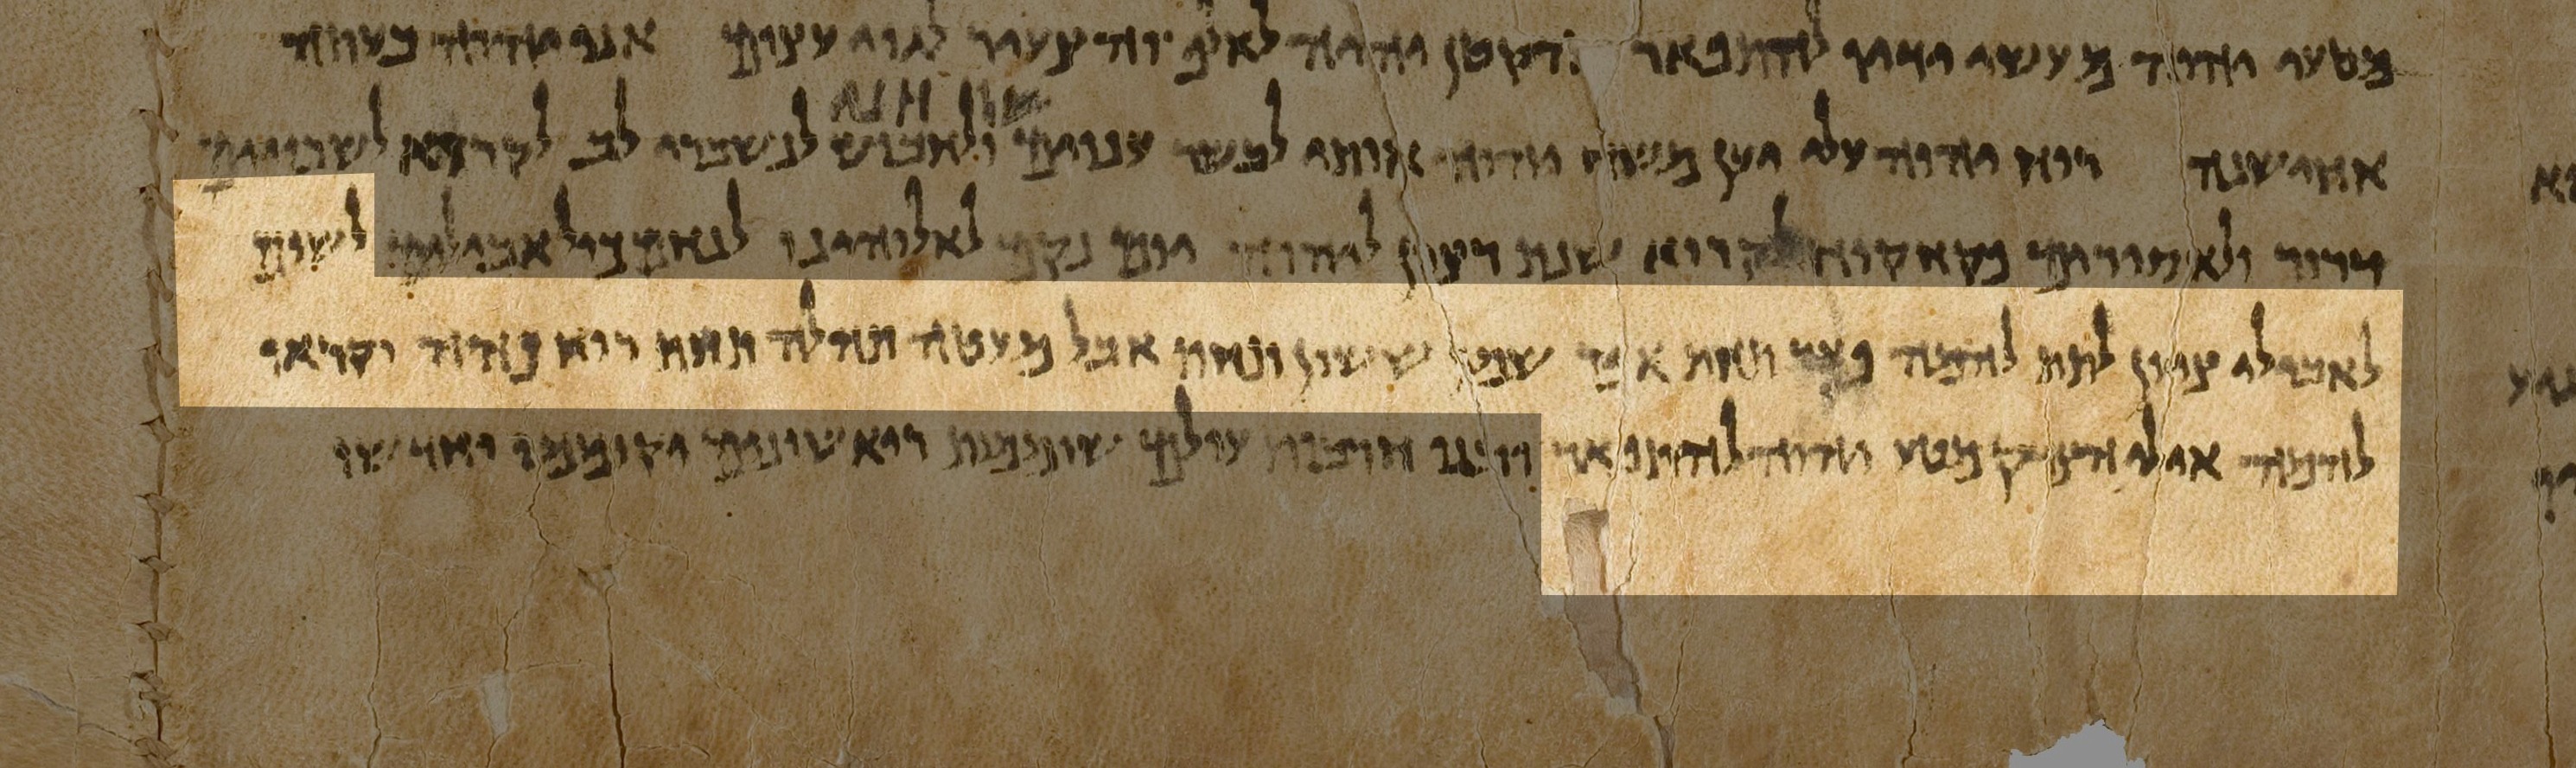 מטעי יהוה מעשי ידיו להתפאר הקטן יהיה לאלף והצעיר לגוי עצום אני יהוה בעתה
שלחני
אחישנה רוח יהוה עלי יען משח יהוה אותי לבשר ענוים ולחבוש לנשברי לב לקרוא לשבויים
דרור ולאסורים פקח קוח לקרוא שנת רצון ליהוה יום נקם לאלוהינו לנחם כול אבלים לשום
לאבילי ציון לתת להמה פאר תחת אפר שמן ששון תחת אבל מעטה תהלה תחת רוח כהה וקראו
להמה אילי הצדק מטע יהוה להתפאר ובנו חורבות עולם שוממות רואשונים יקוממו וחדשו